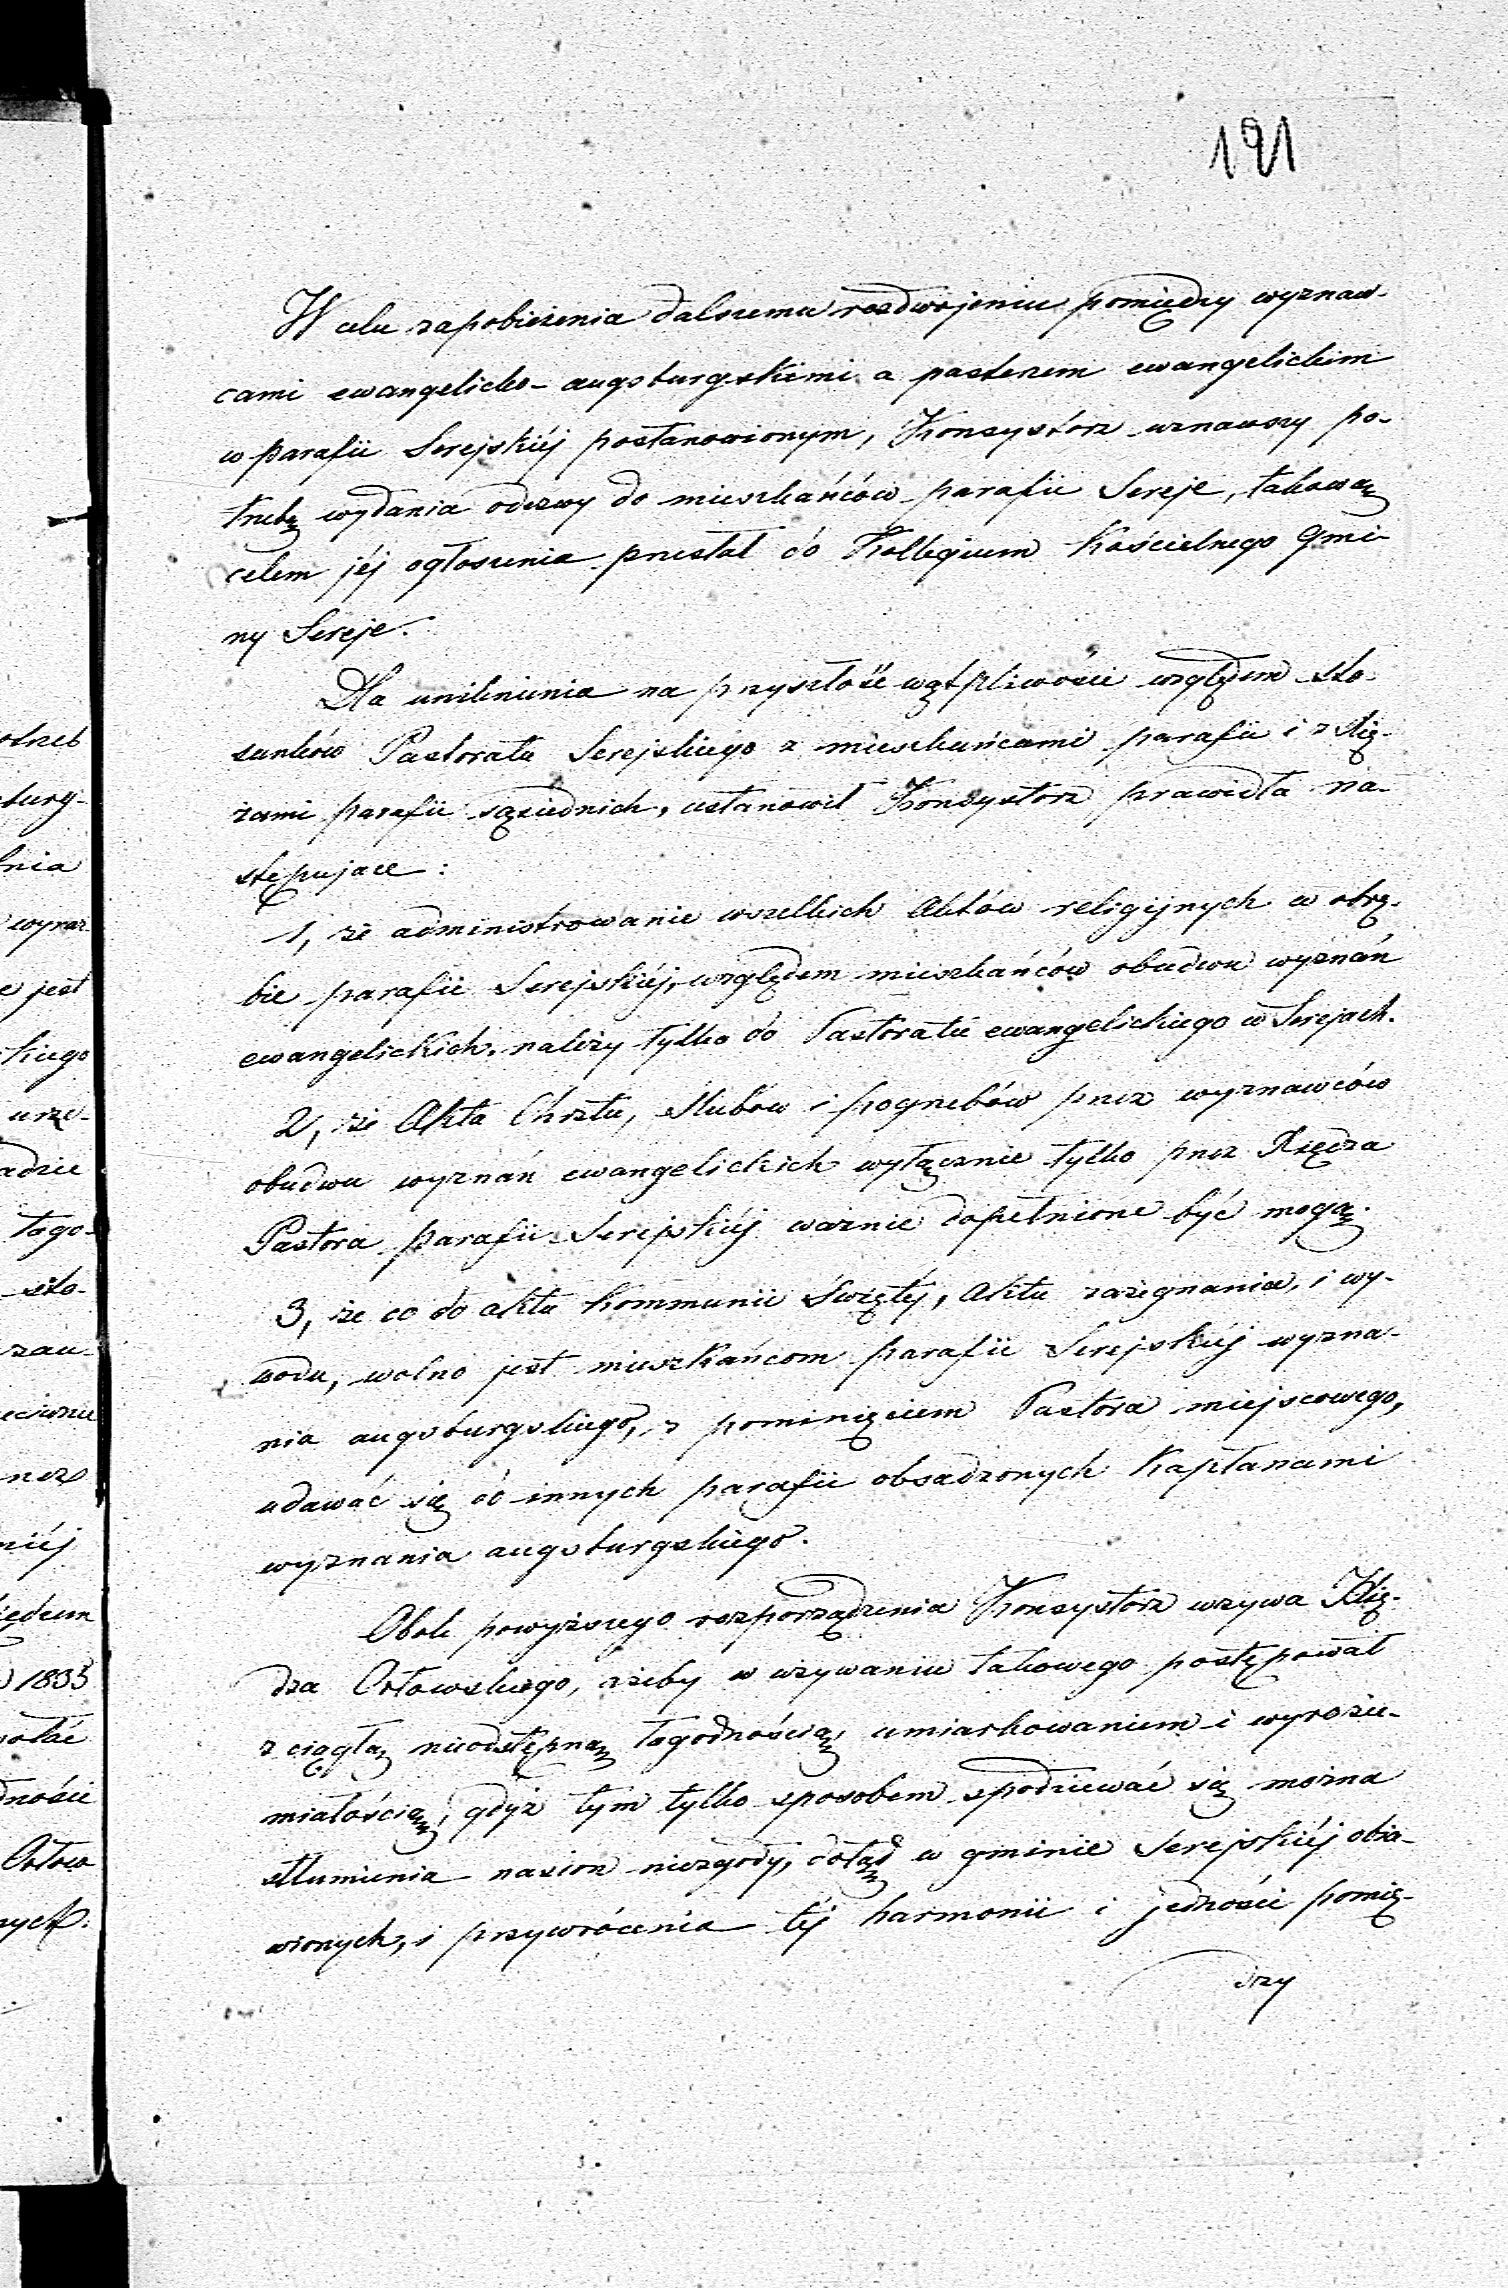 191
W celu zapobieżenia dalszemu rozdwojeniu pomiędzy wyznaw-
cami ewangelicko-augsburgskiemi a pasterzem ewangelickim
w parafii Serejskiéj postanowionym, Konsystorz uznawszy po-
trzebę wydania odezwy do mieszkańców parafii Sereje, takową
celem jéj ogłoszenia przesłał do Kollegium Kościelnego Gmi-
ny Sereje.
Dla uniknienia na przyszłość wątpliwości względem sto-
sunków Pastoratu Serejskiego z mieszkańcami parafii i z Xię-
żami parafii sąsiednich, ustanowił Konsystorz prawidła na-
stępujace:
1, że administrowanie wszelkich Aktów religijnych w obrę-
bie parafii Serejskiéj, względem mieszkańców obudwu wyznań
ewangelickich, należy tylko do Pastoratu ewangelickiego w Serejach.
2, że Akta Chrztu, ślubów i pogrzebów przez wyznawców
obudwu wyznań ewangelickich wyłącznie tylko przez Xiędza
Pastora parafii Serejskiéj ważnie dopełnione być mogą.
3, że co do aktu Kommunii Świętéj, Aktu zażegnania, i wy-
wodu, wolno jest mieszkańcom parafii Serejskiéj wyzna-
nia augsburgskiego, z pominięciem Pastora miejscowego,
udawać się do innych parafii obsadzonych Kapłanami
wyznania augsburgskiego.
Obok powyższego rozporządzenia Konsystorz wzywa Xię-
dza Orłowskiego, ażeby w używaniu takowego postępował
z ciągłą nieodstępną łagodnością, umiarkowaniem i wyrozu-
miałością, gdyż tym tylko sposobem spodziewać się można
stłumienia nasion niezgody, dotąd w gminie Serejskiéj obja-
wionych, i przywrócenia téj harmonii i jedności pomię-
dzy
otrzeb
burg-
wyraz
e jest
kiego
urzę-
adzie
łago-
sto-
zau-
niéj
1835
ności
Orłow
nych.